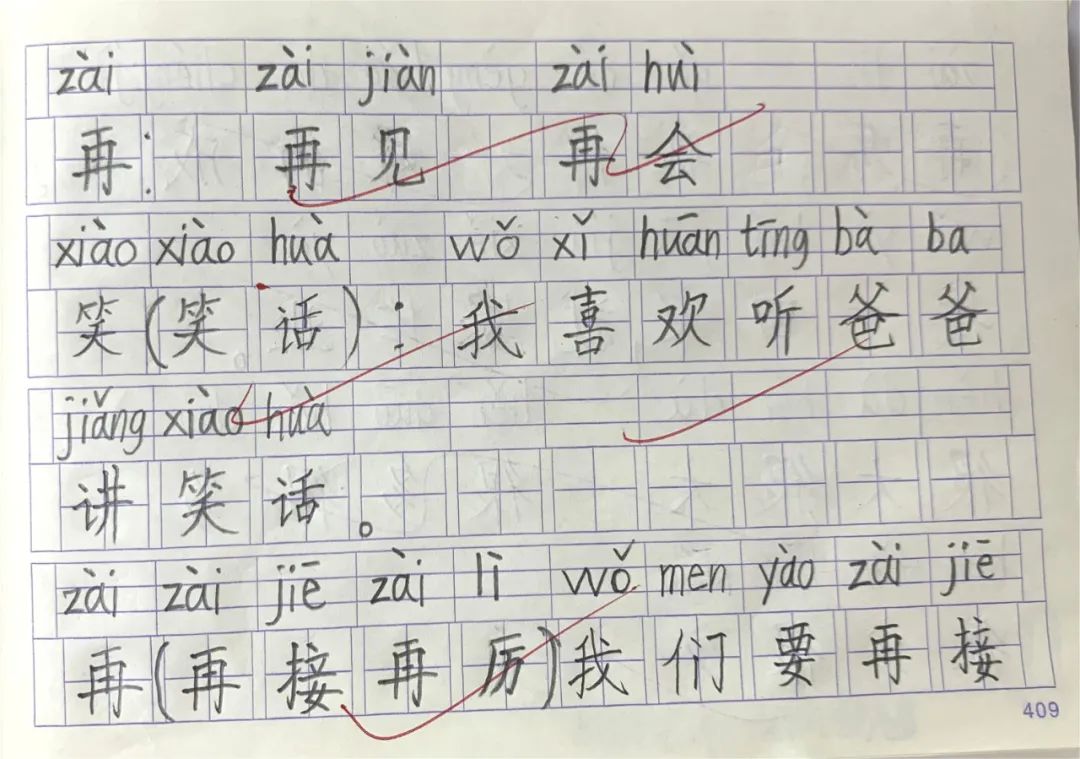 zài zài jiàn zài huì
再: 再见 再会
xiào xiào huà wǒ xǐ huān tīng bà ba
笑(笑话): 我喜欢听爸爸
jiǎng xiào huà
讲笑话。
zài zài jiē zài lì wǒ men yào zài jiē
再(再接再厉)我们要再接
409